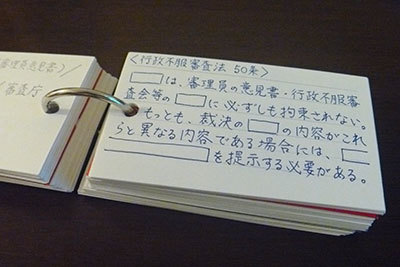 審理員意見書)/
/審査庁
〈行政不服審査法 50条〉
□は、審理員の意見書・行政不服審
査会等の□に必ずしも拘束されない。
もっとも、裁決の□の内容がこれ
らと異なる内容である場合には、□
□を提示する必要がある。